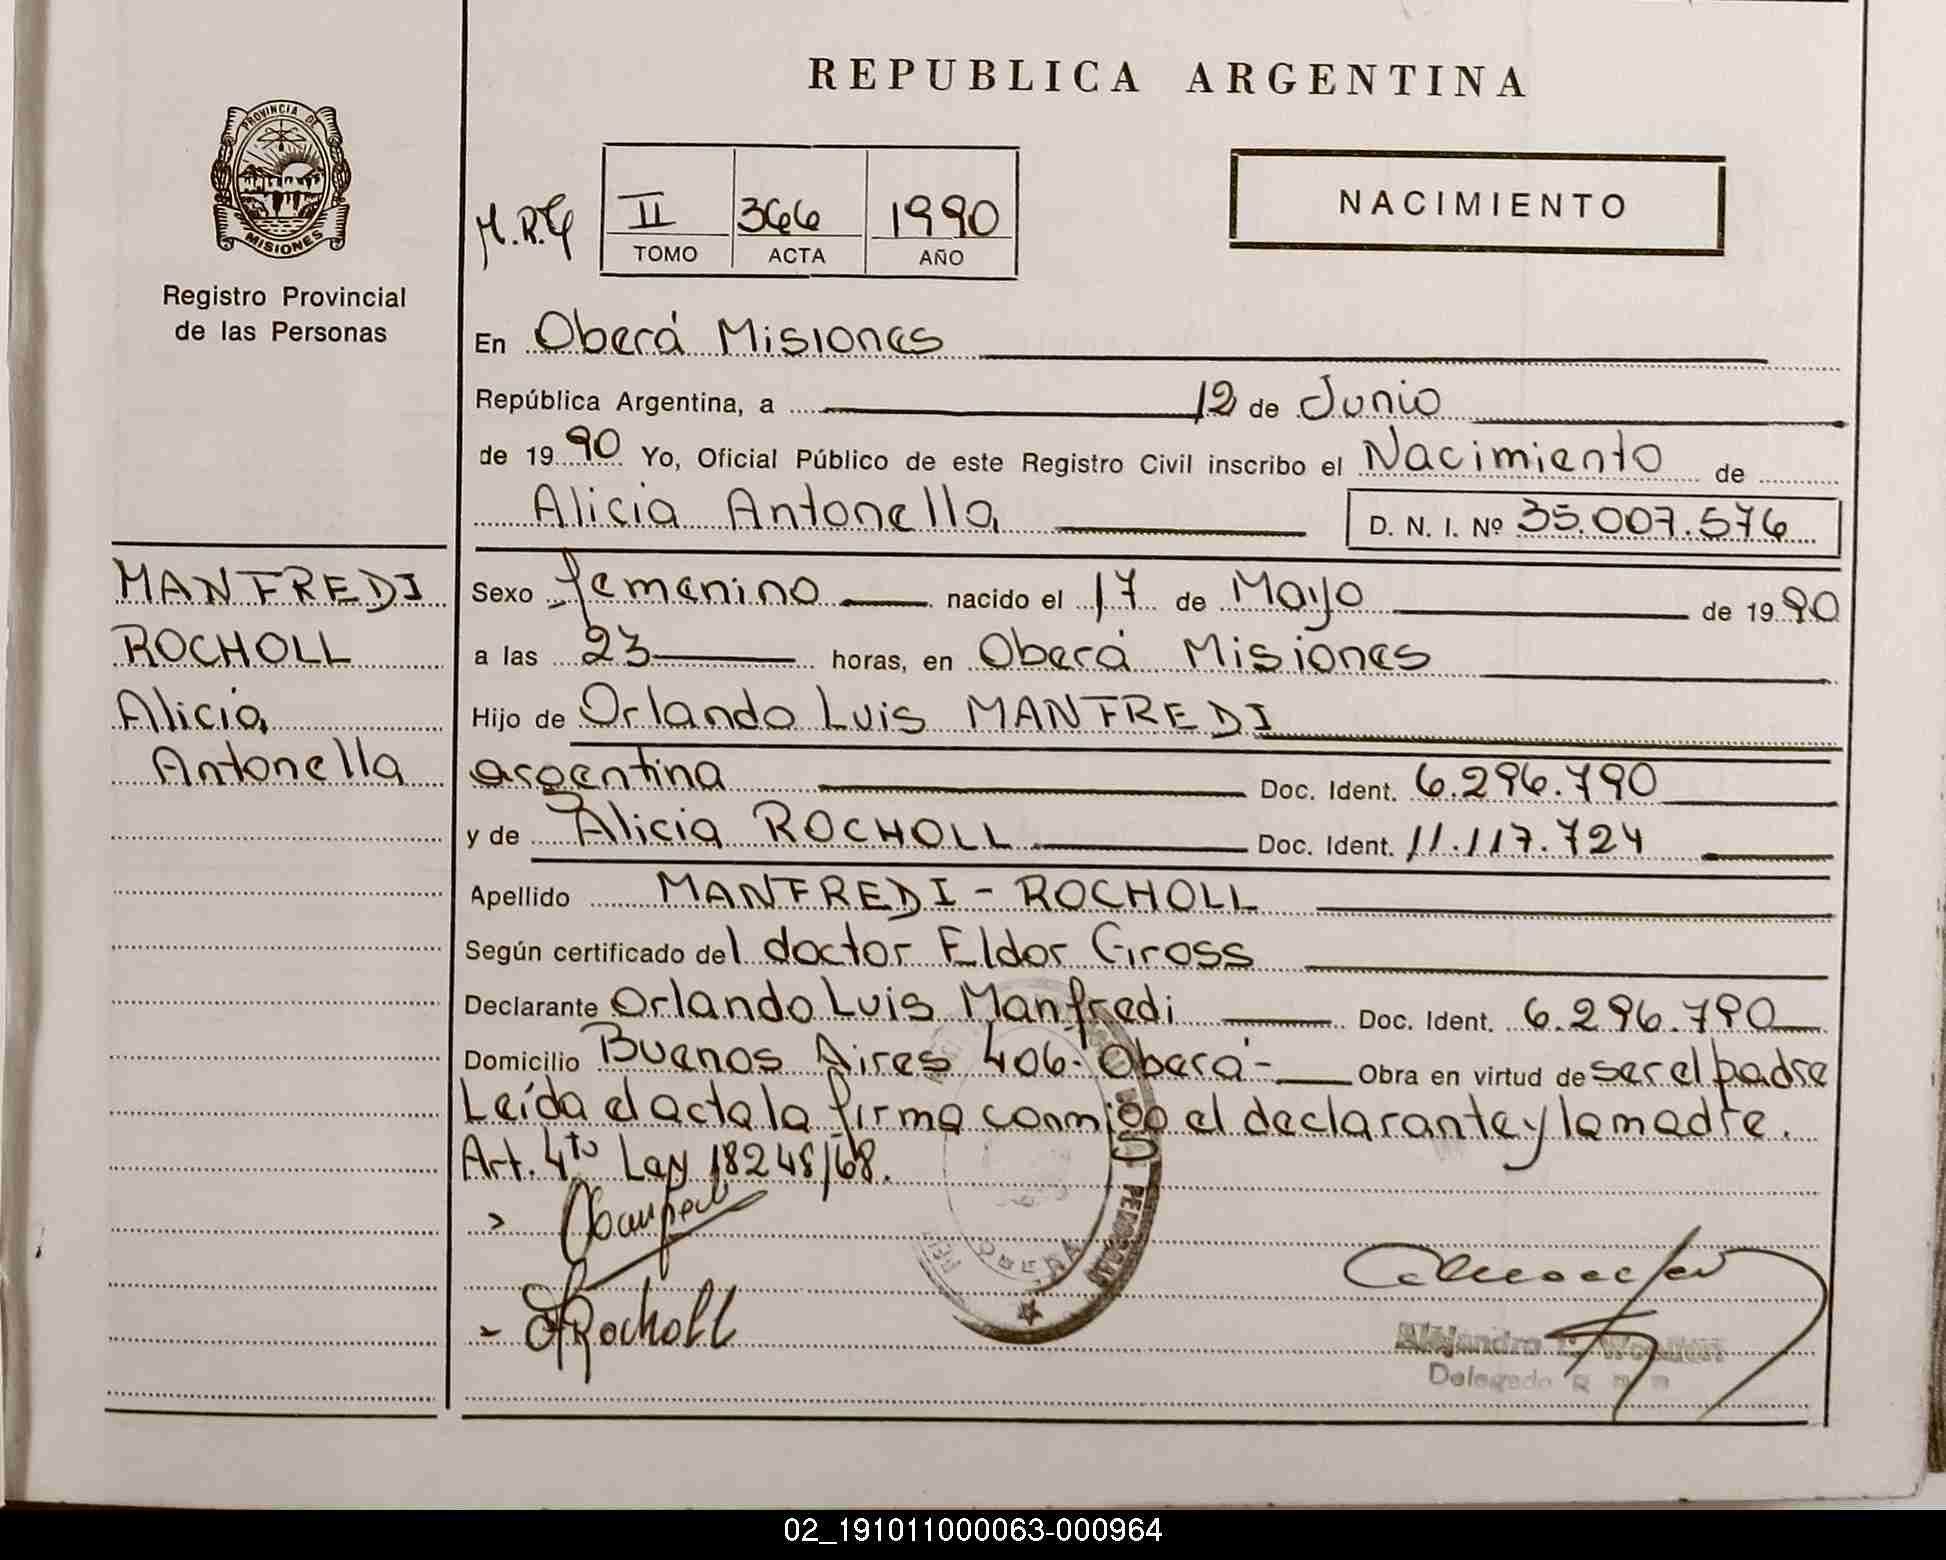 REPUBLICA ARGENTINA
PROVINCIA DE
MISIONES
Registro Provincial
de las Personas
M.R.G
II 366 1990
TOMO ACTA AÑO
NACIMIENTO
En Oberá Misiones
República Argentina, a 12 de Junio
de 19 90 Yo, Oficial Público de este Registro Civil inscribo el Nacimiento de
Alicia Antonella D. N. I. Nº 35.007.576
MANFREDI
ROCHOLL
Alicia
Antonella
Sexo femenino nacido el 17 de Mayo de 19 90
a las 23 horas, en Oberá Misiones
Hijo de Orlando Luis MANFREDI
argentina Doc. Ident. 6.296.790
y de Alicia ROCHOLL Doc. Ident. 11.117.724
Apellido MANFREDI - ROCHOLL
Según certificado del doctor Eldor Gross
Declarante Orlando Luis Manfredi Doc. Ident. 6.296.790
Domicilio Buenos Aires 406- Oberá- Obra en virtud de ser el padre
Leída el acta la firma conmigo el declarante y la madre.
Art. 4to Ley 18248/68.
Rocholl
OBERA
Alejandro
Delegado
02_191011000063-000964